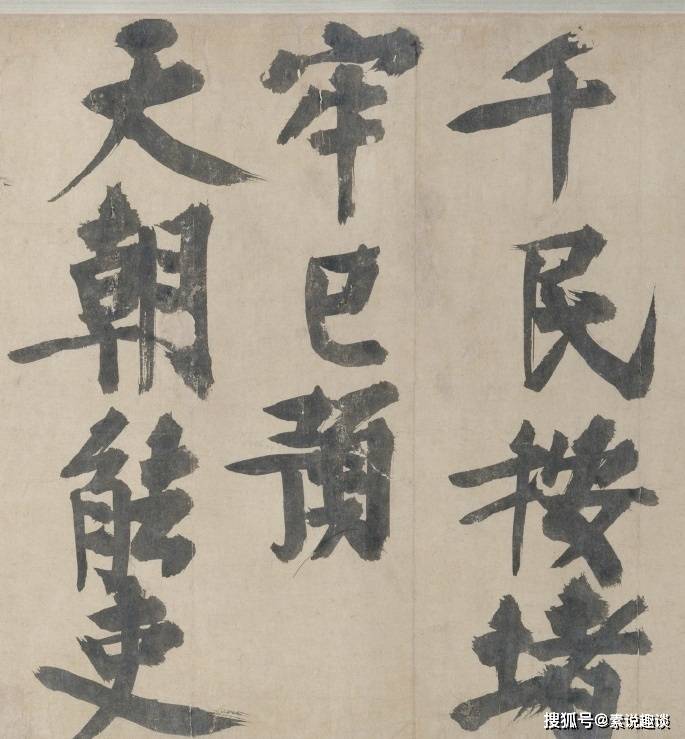 千民按堵
牢已預
天朝能吏
搜狐号@素说趣谈